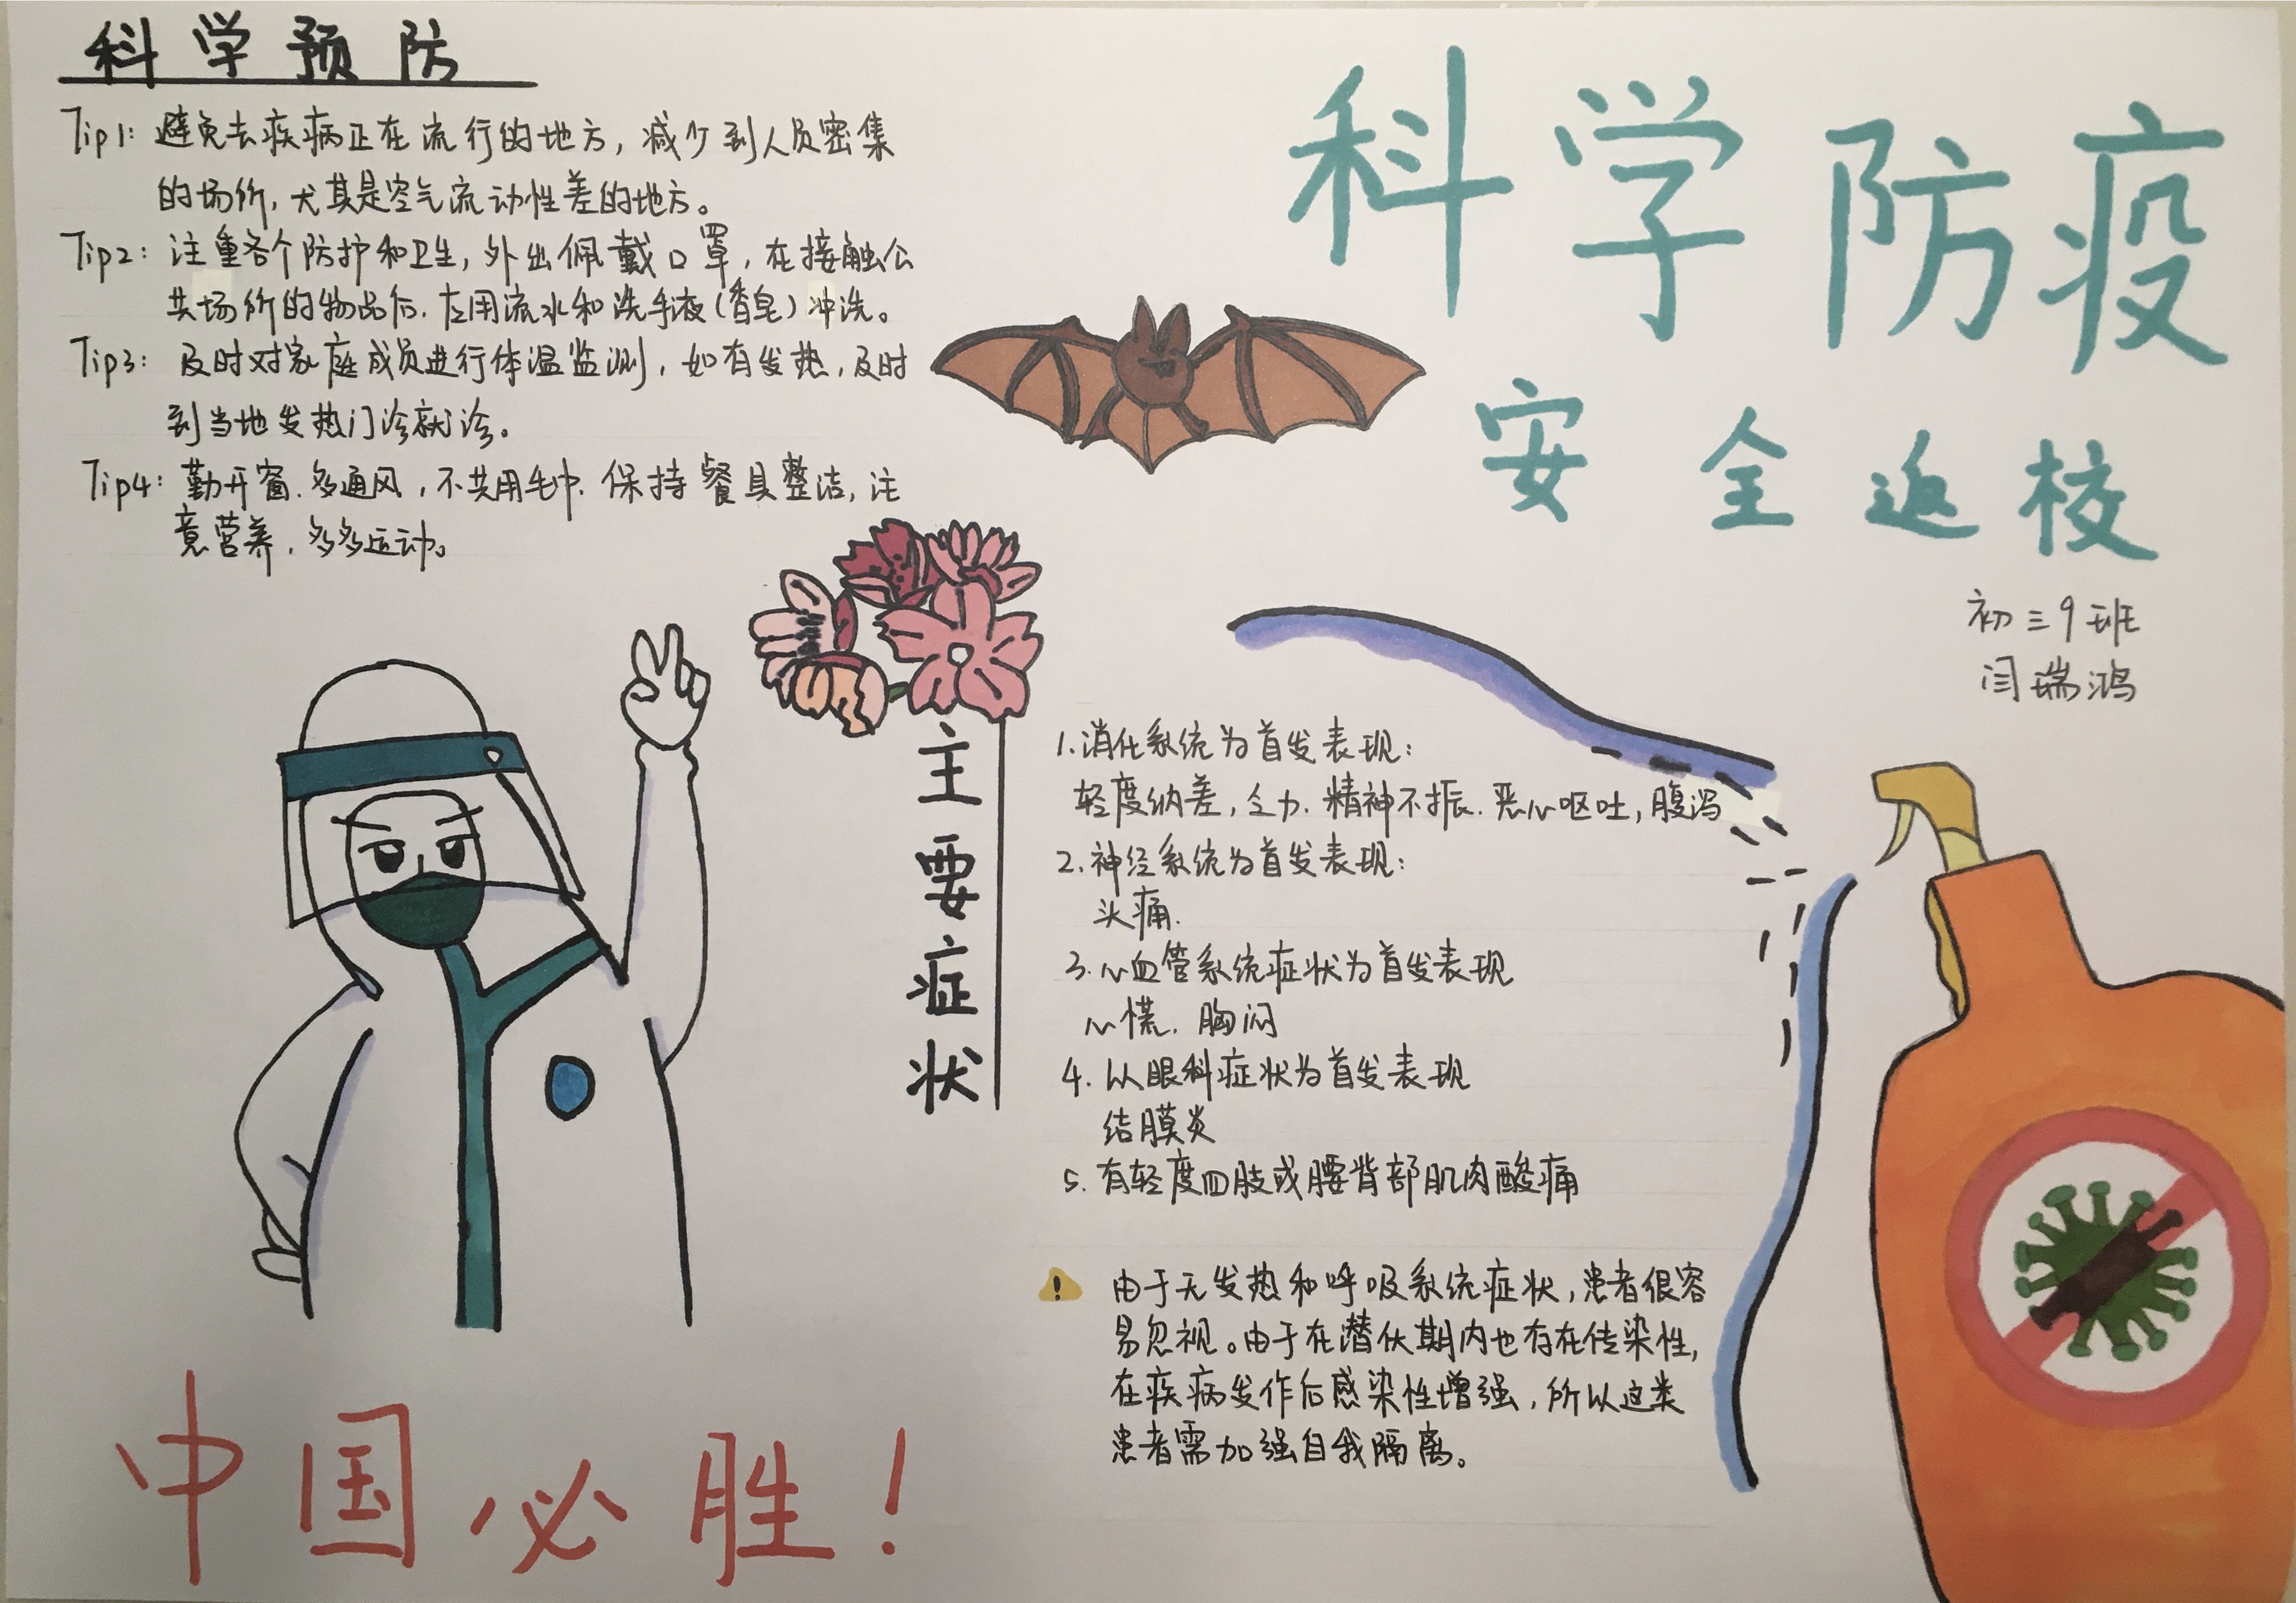 科学预防
Tip1: 避免去疾病正在流行的地方，减少到人员密集
的场所，尤其是空气流动性差的地方。
Tip2: 注重各个防护和卫生，外出佩戴口罩，在接触公
共场所的物品后，应用流水和洗手液（香皂）冲洗。
Tip3: 及时对家庭成员进行体温监测，如有发热，及时
到当地发热门诊就诊。
Tip4: 勤开窗、多通风，不共用毛巾、保持餐具整洁，注
意营养、多多运动。
科学防疫
安全返校
初三9班
闫瑞鸿
主要症状
1.消化系统为首发表现：
轻度纳差，乏力、精神不振、恶心呕吐，腹泻
2.神经系统为首发表现：
头痛.
3.心血管系统症状为首发表现
心慌、胸闷
4.以眼科症状为首发表现
结膜炎
5.有轻度四肢或腰背部肌肉酸痛
! 由于无发热和呼吸系统症状，患者很容
易忽视。由于在潜伏期内也存在传染性，
在疾病发作后感染性增强，所以这类
患者需加强自我隔离。
中国必胜！